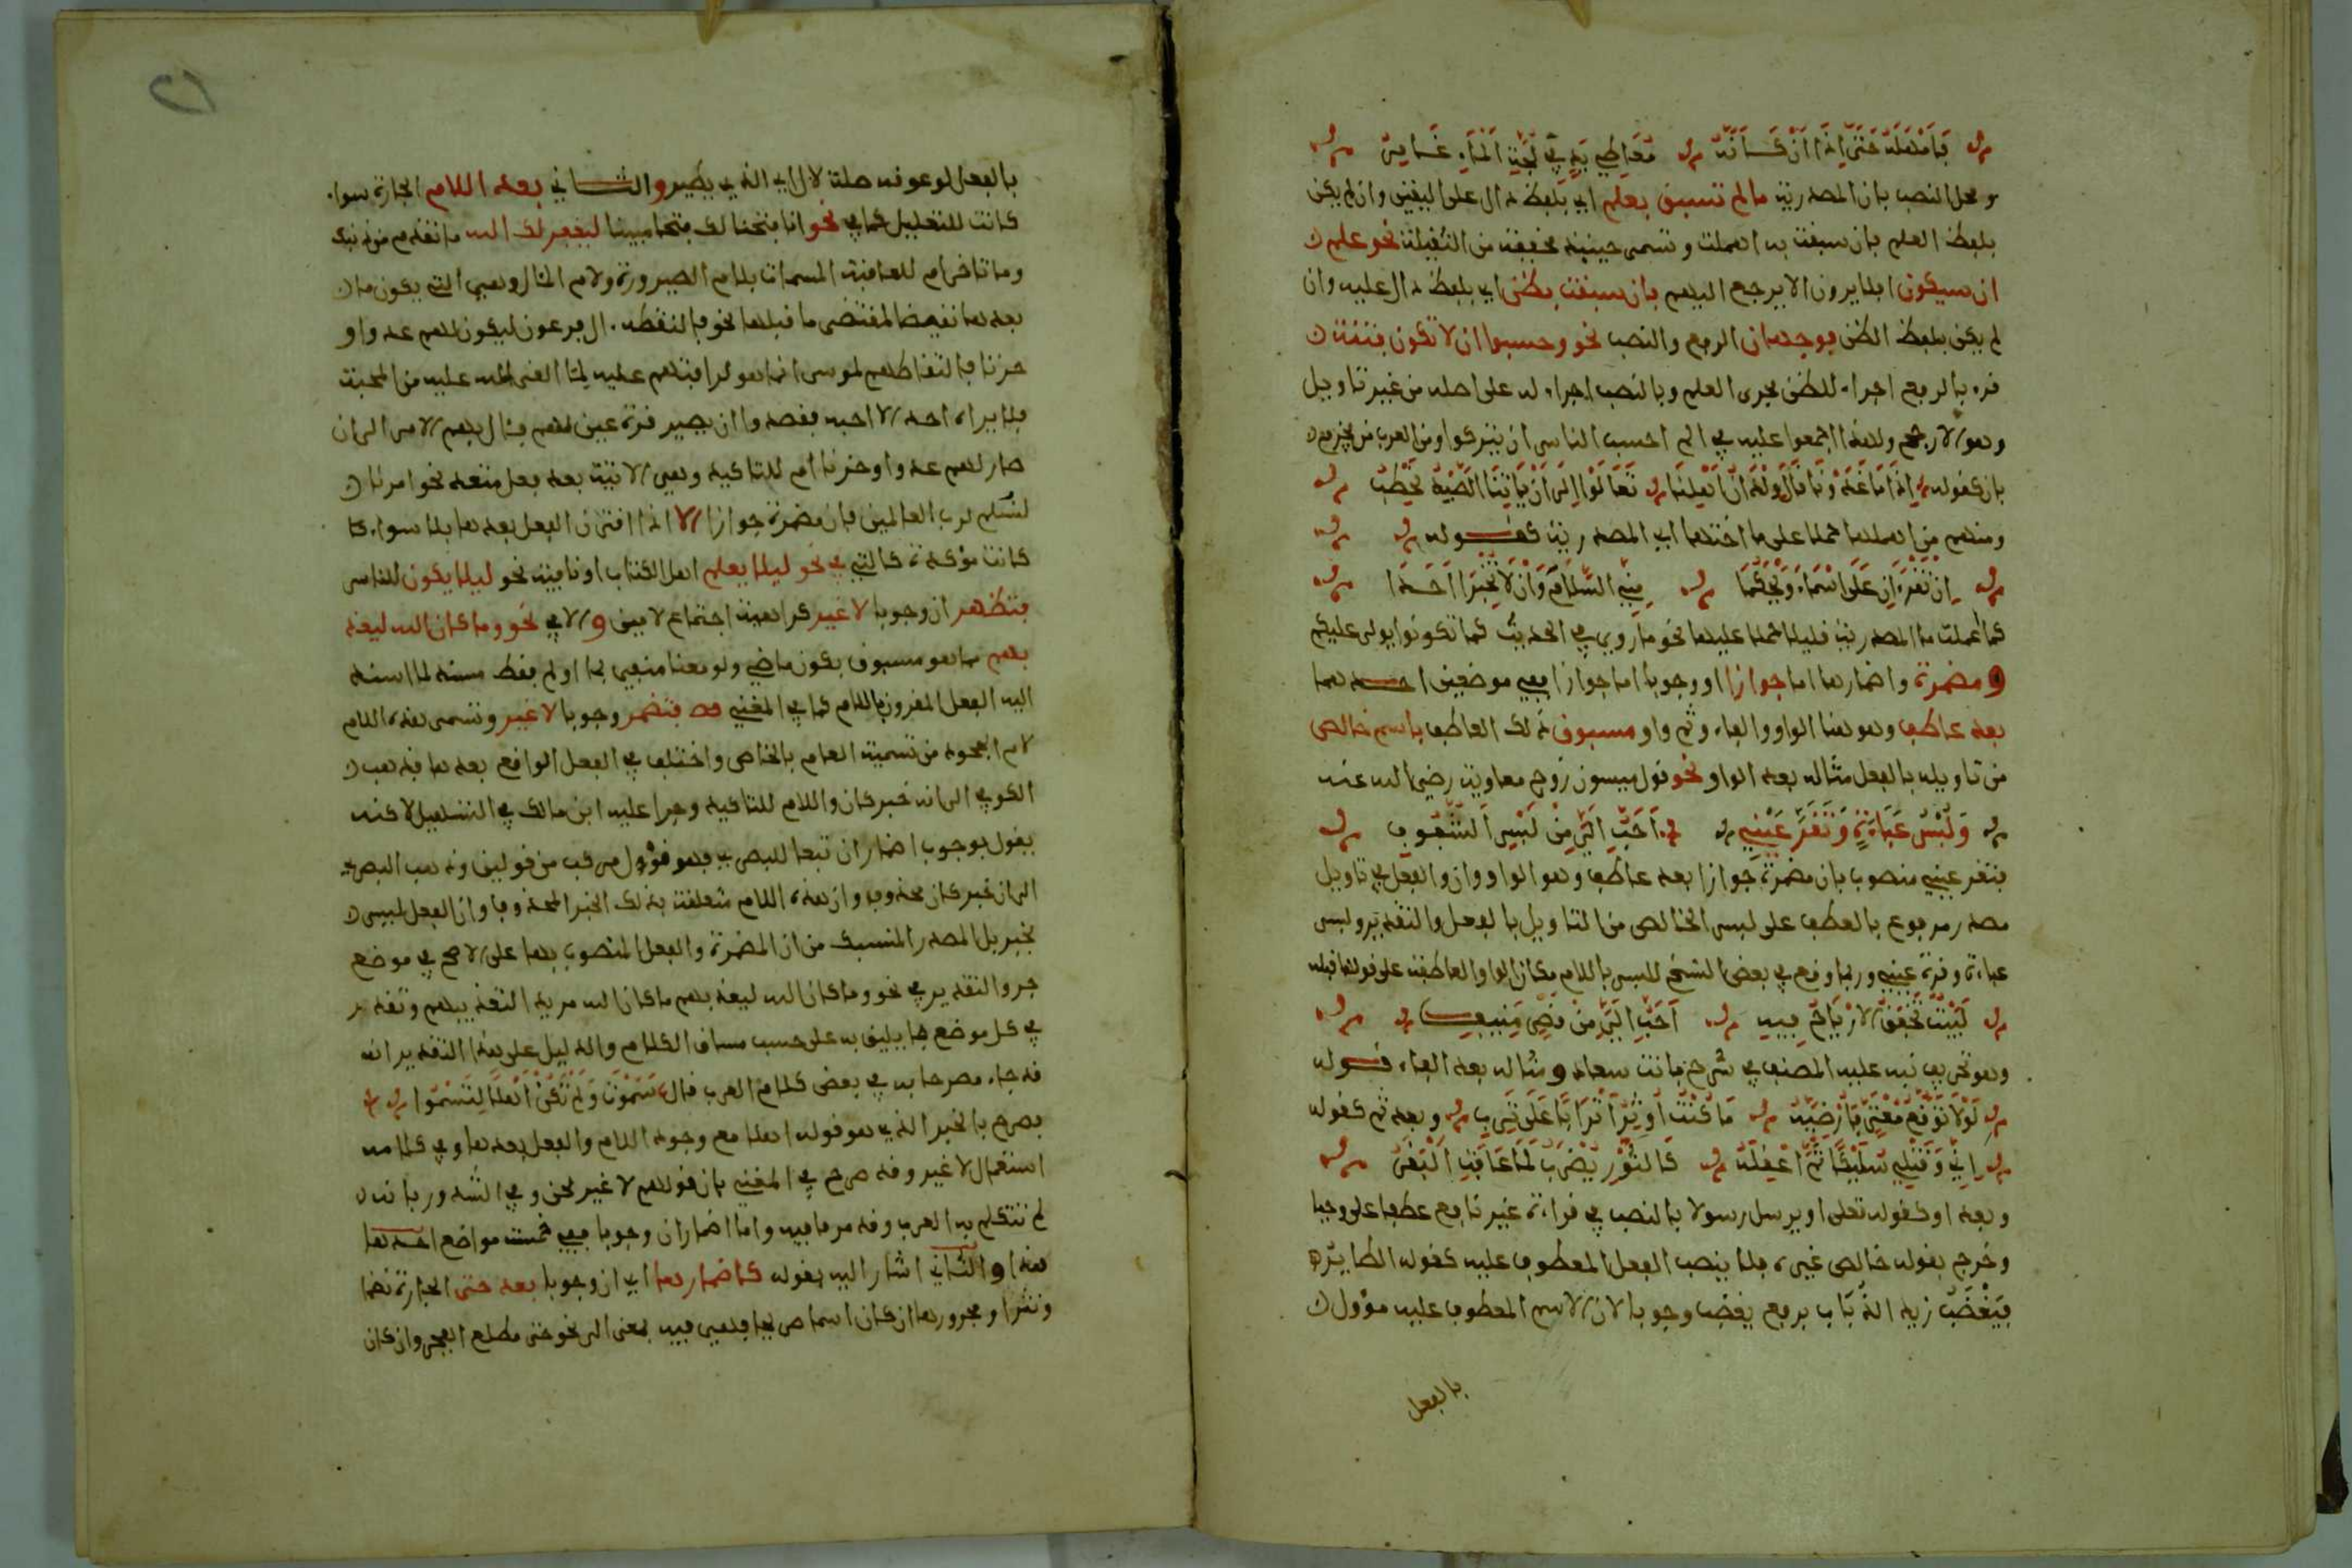 فأمهله حتى إذا أن كأنه معاطي يد في لجة الماء غامر
ومحل النصب بان المصدرية ما لم تسبق بعلم اي بلفظ دال على اليقين وان لم يكن
بلفظ العلم فان سبقت به اهملت وتسمى حينئذ مخففة من الثقيلة نحو علم
ان سيكون افلا يرون الا يرجع اليهم فان سبقت بظن اي بلفظ دال عليه وان
لم يكن بلفظ الظن فوجهان الرفع والنصب نحو وحسبوا ان لا تكون فتنة
قرء بالرفع اجراء للظن مجرى العلم وبالنصب اجراء له على اصله من غير تاويل
وهو الارجح ولهذا اجمعوا عليه في الم احسب الناس ان يتركوا ومن العرب من يجزم
بان كقوله إذا ما غدونا قال ولدان أهلنا تعالوا إلى أن ياتنا الصيد نحطب
ومنهم من اهملها حملا على ما اختها اي المصدرية كقوله
ان تقرءان على أسماء ويحكما مني السلام وأن لا تخبرا أحدا
كما أعملت ما المصدرية قليلا حملا عليها نحو ما روي في الحديث كما تكونوا يولى عليكم
ومضمرة واضمارها اما جوازا او وجوبا اما جوازا ففي موضعين احدهما
بعد عاطف وهو هنا الواو والفاء وثم واو مسبوق ذلك العاطف باسم خالص
من تاويله بالفعل مثاله بعد الواو نحو قول ميسون زوج معاوية رضي الله عنه
ولبس عباءة وتقر عيني أحب إلي من لبس الشفوف
فتقر عيني منصوب بان مضمرة جوازا بعد عاطف وهو الواو وان والفعل في تاويل
مصدر مرفوع بالعطف على لبس الخالص من التاويل بالفعل والتقدير ولبس
عباءة وقرة عيني وربما وقع في بعض النسخ للبس باللام مكان الواو العاطفة على قولها قبله
لبيت تخفق الارياح فيه أحب إلي من قصر منيف
وهو تحريف نبه عليه المصنف في شرح بانت سعاد ومثاله بعد الفاء قوله
لولا توقع معتر فأرضيه ما كنت أوثر أترابا على ترب وبعد ثم كقوله
إني وقتلي سليكا ثم أعقله كالثور يضرب لما عافت البقر
وبعد او كقوله تعلى او يرسل رسولا بالنصب في قراءة غير نافع عطفا على وحيا
وخرج بقوله خالص غيره فلا ينصب الفعل المعطوف عليه كقوله الطاير
فيغضب زيد الذباب برفع يغضب وجوبا لان الاسم المعطوف عليه مؤول
بالفعل
بالفعل لوقوعه صلة لال اي الذي يطير والثاني بعد اللام الجارة سواء
كانت للتعليل كما في نحو انا فتحنا لك فتحا مبينا ليغفر لك الله ما تقدم من ذنبك
وما تاخر ام للعاقبة المسمات بلام الصيرورة ولام المئال وهي التي يكون ما
بعدها نقيضا لمقتضى ما قبلها نحو فالتقطه ءال فرعون ليكون لهم عدوا و
حزنا فالتقاطهم لموسى انما هو لرافتهم عليه لما القى الله عليه من المحبة
فلا يراه احد الا احبه فقصدوا ان يصير قرة عين لهم فئال بهم الامر الى ان
صار لهم عدوا وحزنا ام للتاكيد وهي الاتية بعد فعل متعد نحو امرنا
لنسلم لرب العالمين فان مضمرة جوازا الا اذا اقترن الفعل بعدها بلا سواء
كانت مؤكدة كالتي في نحو ليلا يعلم اهل الكتاب او نافية نحو ليلا يكون للناس
فتظهر ان وجوبا لا غير كراهية اجتماع لامين والا في نحو وما كان الله ليعذ
بهم مما هو مسبوق بكون ماضي ولو معنا منفي بما او لم فقط مسند لما اسند
اليه الفعل المقرون باللام كما في المغني فتضمر وجوبا لا غير وتسمى هذه اللام
لام الجحود من تسمية العام بالخاص واختلف في الفعل الواقع بعدها فذهب
الكوفي الى انه خبر كان واللام للتاكيد وجرا عليه ابن مالك في التسهيل لاكنه
يقول بوجوب اضمار ان تبعا للبصري فهو قول مركب من قولين وذهب البصري
الى ان خبر كان محذوف وان هذه اللام متعلقة بذلك الخبر المحذوف وان الفعل ليس
بخبر بل المصدر المنسبك من ان المضمرة والفعل المنصوب بها على الاصح في موضع
جر والتقدير في نحو وما كان الله ليعذبهم ما كان الله مريدا لتعذيبهم وتقدر
في كل موضع ما يليق به على حسب مساق الكلام والدليل على هذا التقدير انه
قد جاء مصرحا به في بعض كلام العرب قال سموت ولم تكن أهلا لتسموا
فصرح بالخبر الذي هو قوله اهلا مع وجود اللام والفعل بعدها وفي كلامه
استعمال لا غير وقد صرح في المغني بان قولهم لا غير لحن وفي الشذور بانه
لم تتكلم به العرب وقد مر ما فيه واما اضمار ان وجوبا ففي خمسة مواضع احدها
هذا والثاني اشار اليه بقوله كاضمارها اي ان وجوبا بعد حتى الجارة نظما
ونثرا ومجرورها ان كان اسما صريحا فهي فيه بمعنى الى نحو حتى مطلع الفجر وان كان